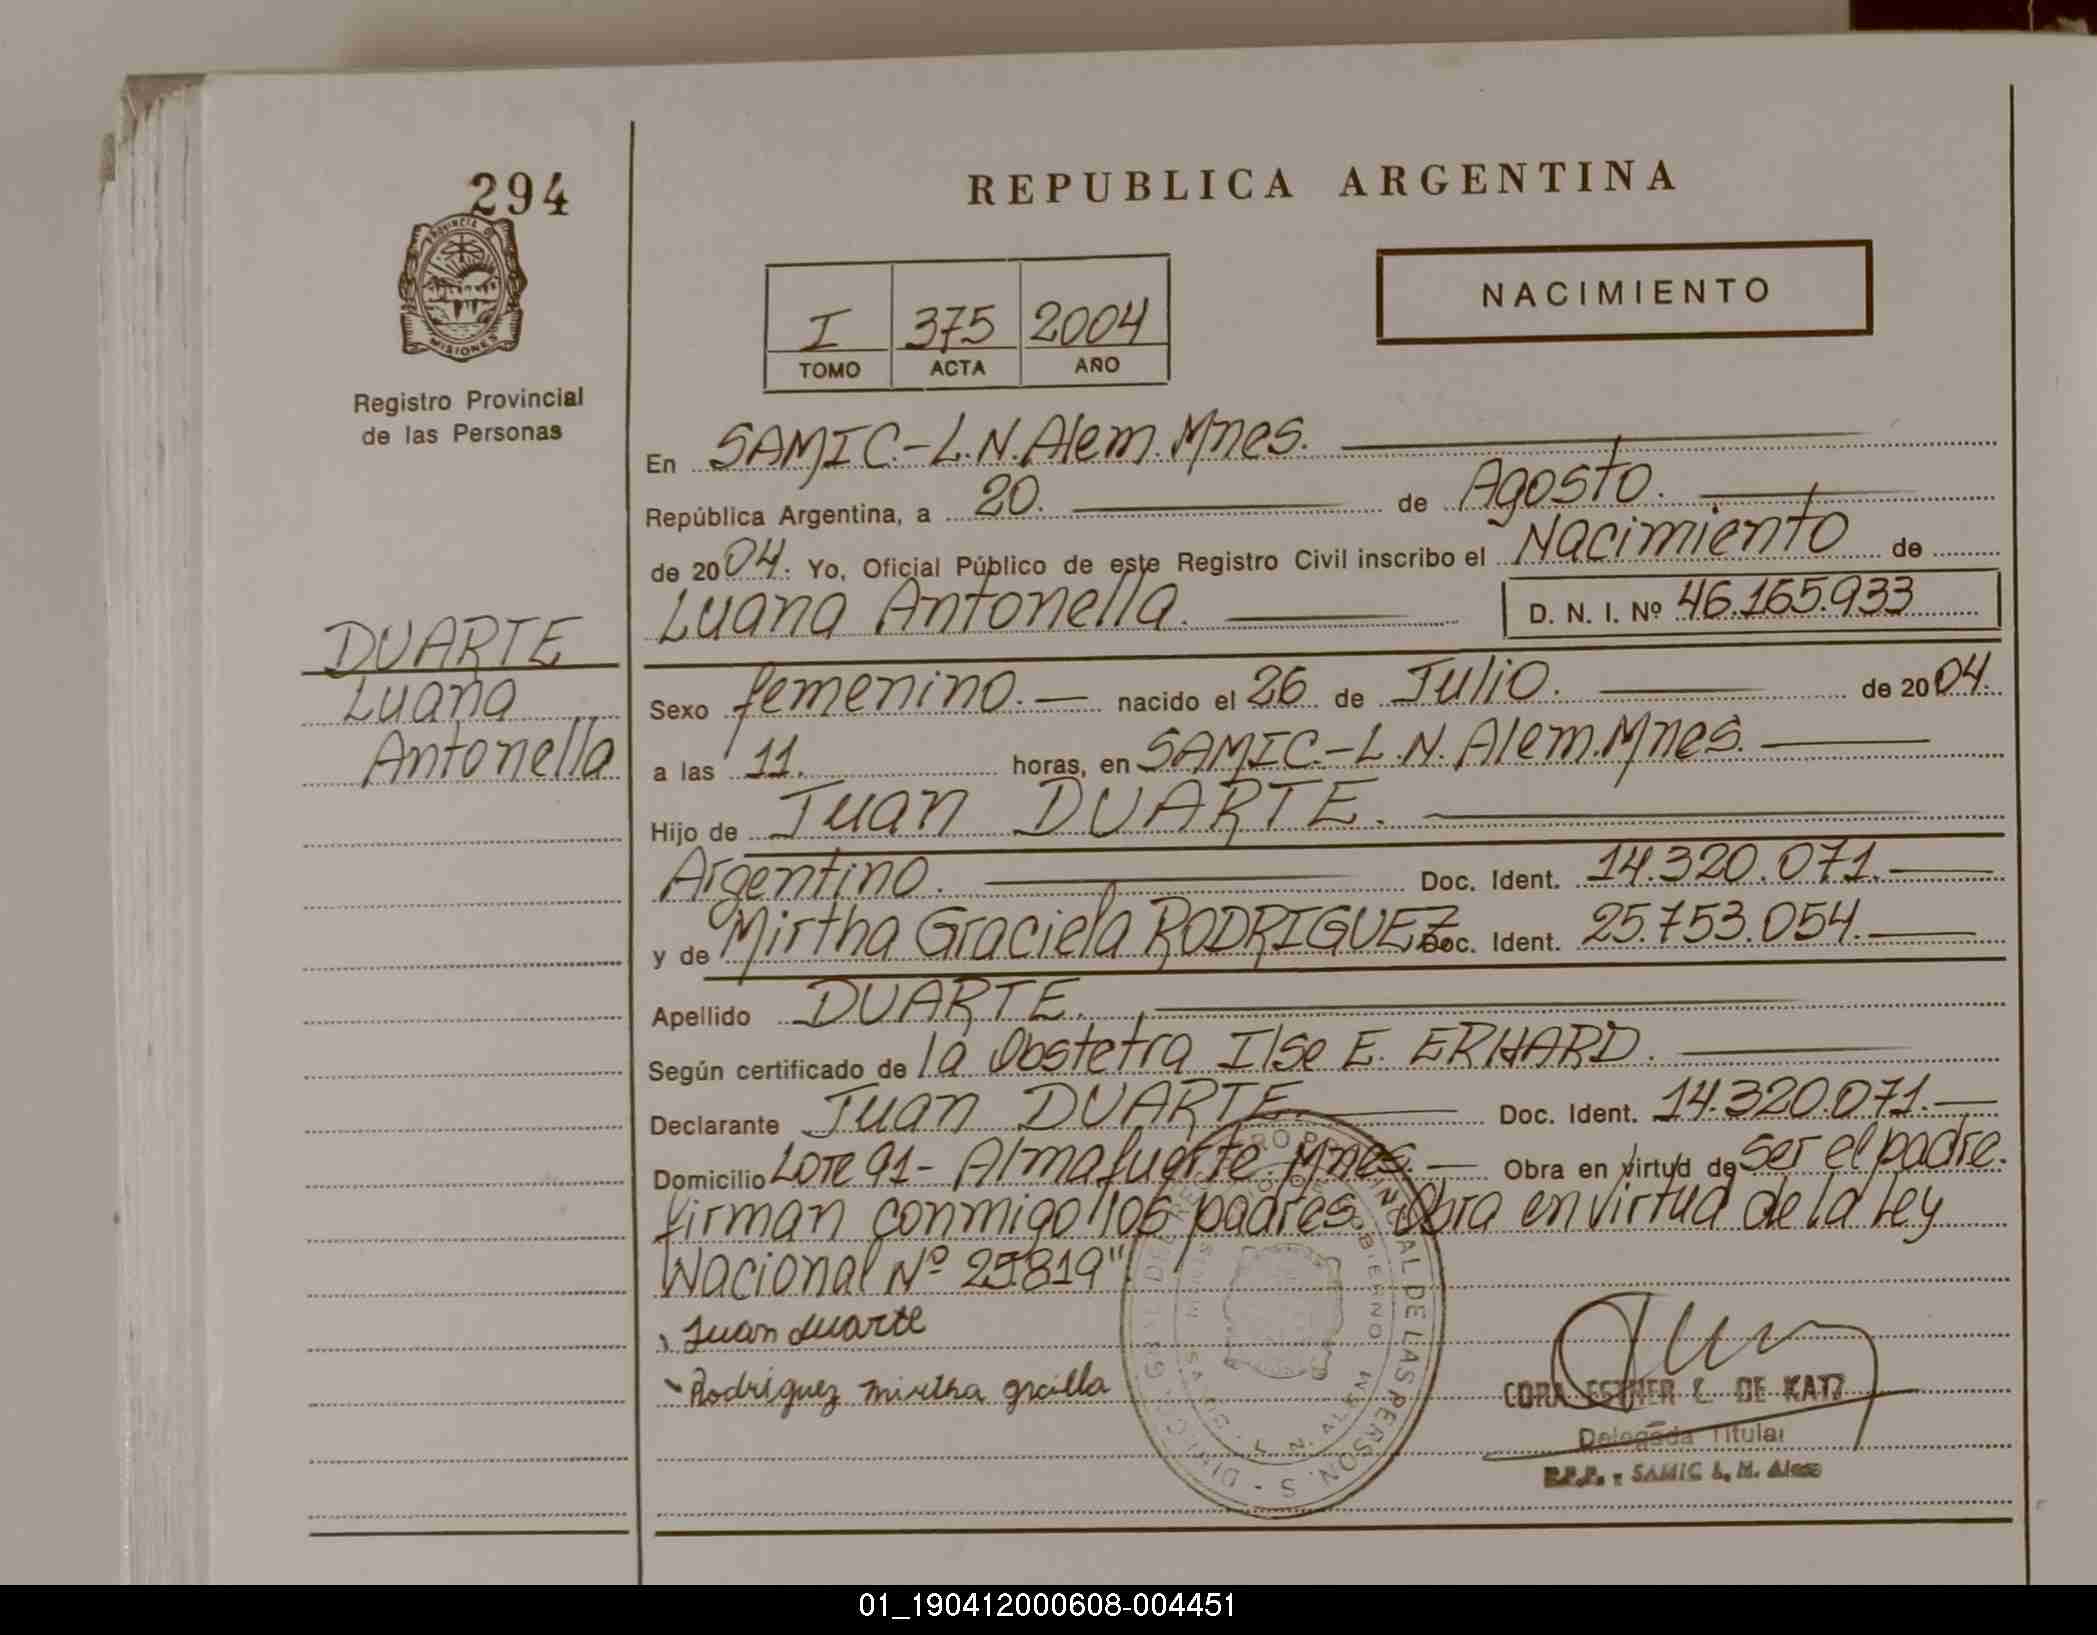 294
PROVINCIA DE
MISIONES
Registro Provincial
de las Personas
DUARTE
Luana
Antonella
REPUBLICA ARGENTINA
NACIMIENTO
I 375 2004
TOMO ACTA AÑO
En SAMIC.-L.N.Alem.Mnes.
República Argentina, a 20. de Agosto.
de 2004. Yo, Oficial Público de este Registro Civil inscribo el Nacimiento de
Luana Antonella. D. N. I. Nº 46.165.933
Sexo femenino.- nacido el 26 de Julio. de 2004.
a las 11. horas, en SAMIC.-L.N.Alem.Mnes.
Hijo de Juan DUARTE.
Argentino. Doc. Ident. 14.320.071.
y de Mirtha Graciela RODRIGUEZ Doc. Ident. 25.753.054.
Apellido DUARTE.
Según certificado de la Obstetra Ilse E. ERHARD.
Declarante Juan DUARTE. Doc. Ident. 14.320.071.
Domicilio Lote 91- Almafuerte. Mnes. Obra en virtud de ser el padre.
firman conmigo los padres. Obra en virtud de la Ley
Nacional Nº 25819"
Juan duarte
Rodriguez mirtha
CORA ESTHER L. DE KATZ
Delegada Titular
R.P.P. - SAMIC L. N. Alem
01_190412000608-004451